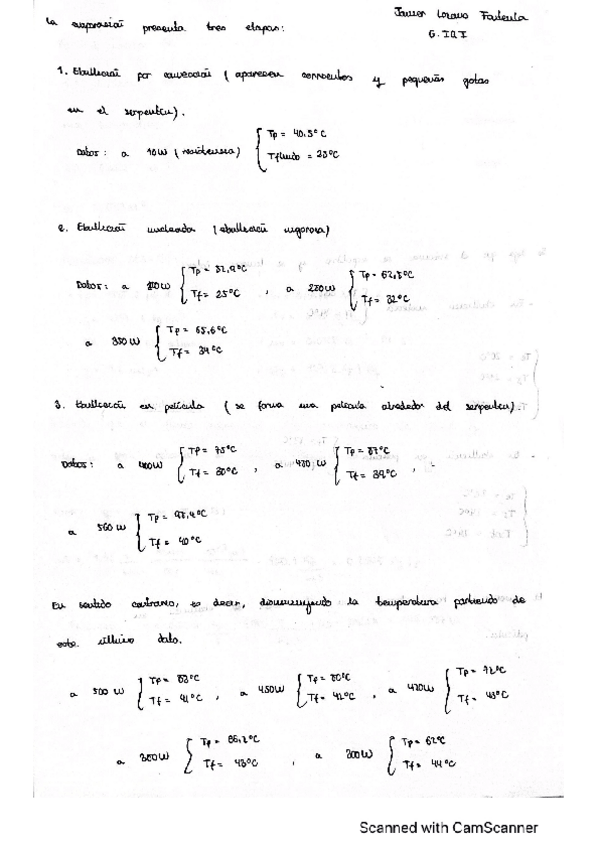 La evaporación presenta tres etapas:
Javier Lozano
G. IQI
1. Ebullición por convección (aparecen corrientes y pequeñas gotas
en el serpentín).
Datos: a 10W (resistencia) { Tp = 40.5°C
Tfluido = 23°C
2. Ebullición nucleada (ebullición vigorosa)
Datos: a W { Tp = °C Tf = 25°C , a W { Tp = °C Tf = 32°C
a 350W { Tp = 65,6°C Tf = 34°C
3. Ebullición en película (se forma una película alrededor del serpentín).
Datos: a 400W { Tp = 75°C Tf = °C , a W { Tp = °C Tf = °C ,
a 560W { Tp = °C Tf = 40°C
En sentido contrario, es decir, disminuyendo la temperatura partiendo de
este último dato.
a 500W { Tp = °C Tf = 41°C , a 450W { Tp = 80°C Tf = 42°C , a 420W { Tp = 72°C Tf = 43°C
a W { Tp = °C Tf = 43°C , a 300W { Tp = 62°C Tf = 44°C
Scanned with CamScanner